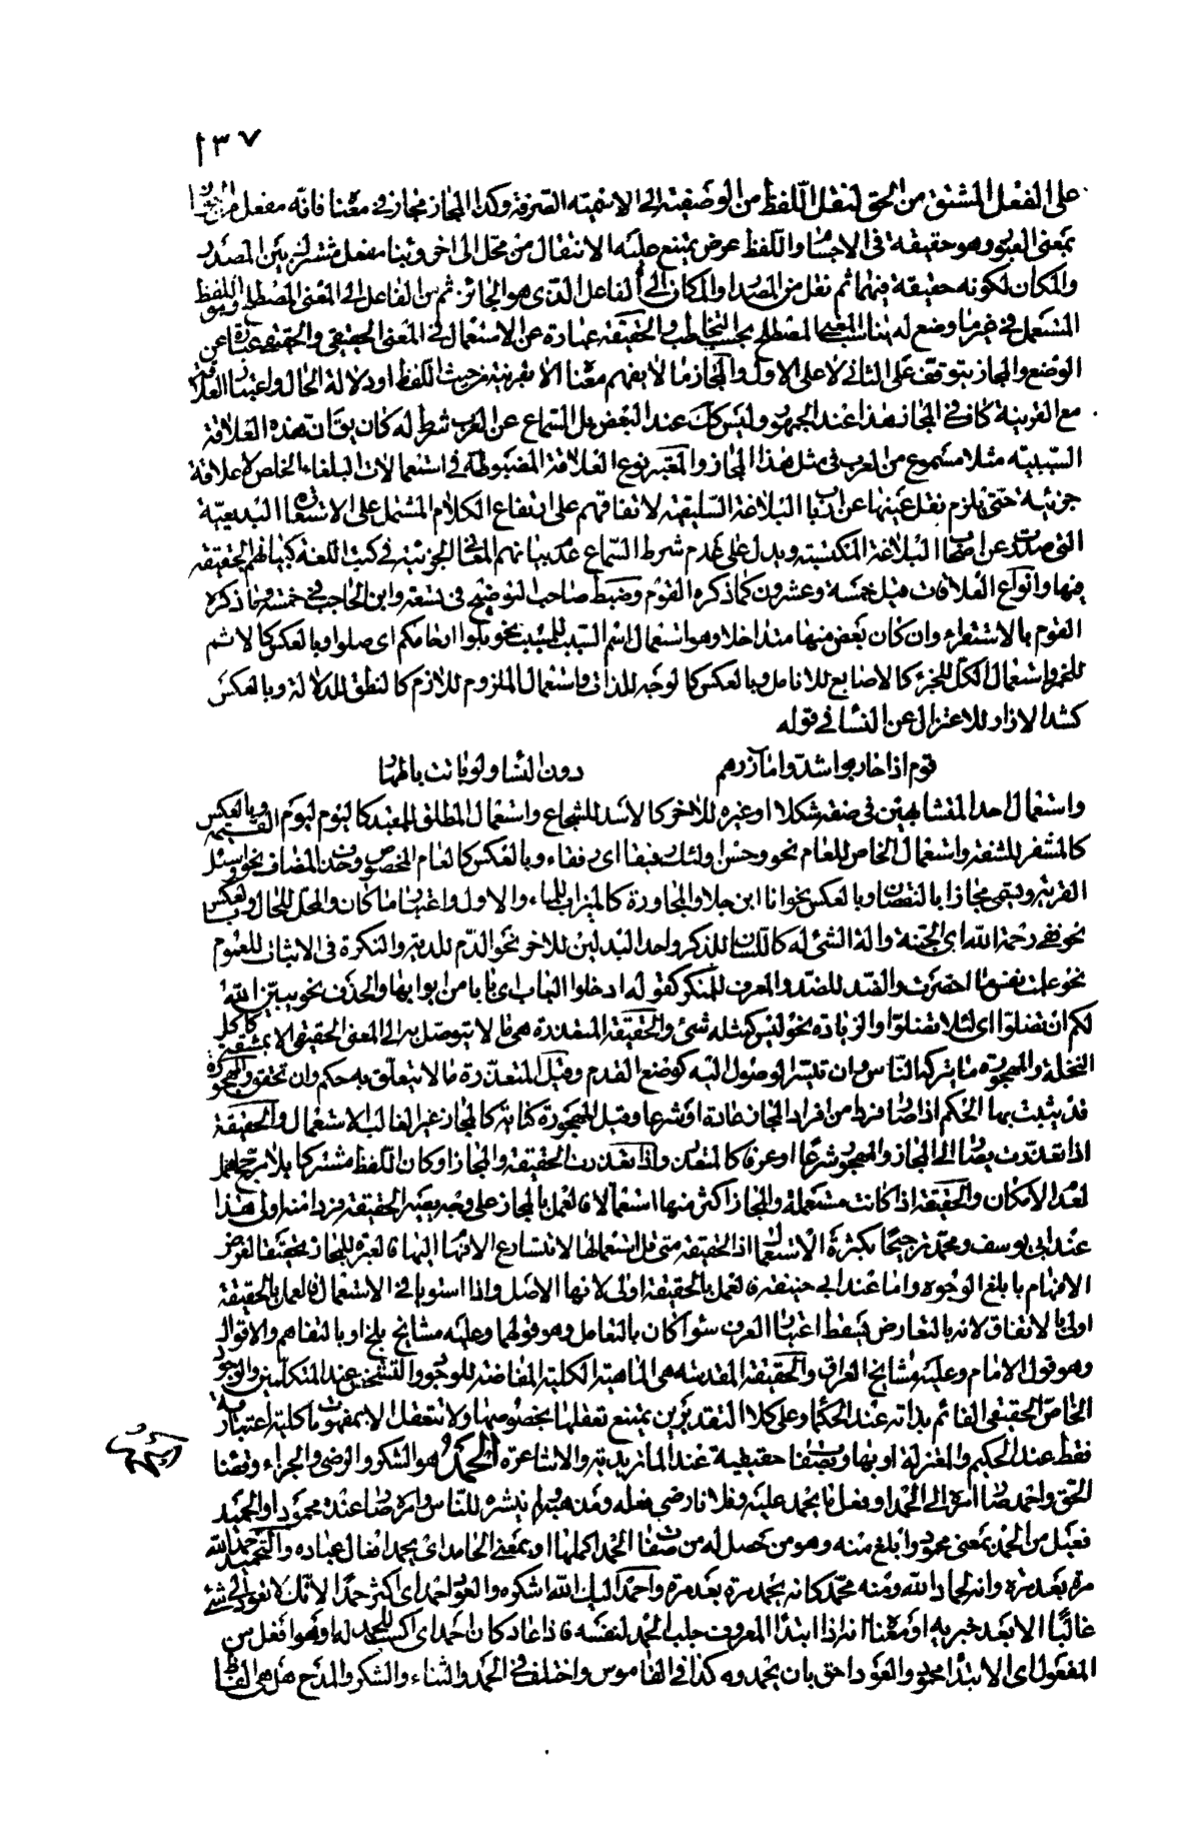 ١٣٧
على الفعل المشتق من الحق لنقل اللفظ من الوصفية الى الاسمية الصرفة وكذا المجاز مجاز في معناه فانه مفعل من
بمعنى العبور وهو حقيقة في الاجسام واللفظ عرض يمتنع عليه الانتقال من محل الى اخر وبناء مفعل مشترك بين المصدر
والمكان لكونه حقيقة فيهما ثم نقل من المصدر او المكان الى الفاعل الذي هو الجائز ثم من الفاعل الى المعنى المصطلح وهو اللفظ
المستعمل في غير ما وضع له يناسب المصطلح بحسب التخاطب والحقيقة عبارة عن الاستعمال في المعنى الحقيقي والحقيقة عبارة عن
الوضع والمجاز يتوقف على الثاني لا على الاول والمجاز ما لا يفهم معناه الا بقرينة من حيث اللفظ او دلالة الحال واعتبار العلاقة
مع القرينة كاف في المجاز هذا عند الجمهور وليس كذلك عند البعض بل السماع عن العرب شرط له كان يقال ان هذه العلاقة
السببية مثلا مسموع من العرب في مثل هذا المجاز والمعتبر نوع العلاقة المضبوطة في استعمالات البلغاء الخاص لا علاقة
جزئية حتى يلزم نقل عينها عن ارباب البلاغة السليقية لاتفاقهم على ارتفاع الكلام المشتمل على الاستعارة البديعية
التي صدرت عن اصحاب البلاغة المكتسبة ويدل على عدم شرط السماع عدم بيانهم المعاني الجزئية في كتب اللغة كبيانهم الحقيقة
فيها وانواع العلاقات قيل خمسة وعشرون كما ذكره القوم وضبط صاحب التوضيح في تسعة وابن الحاجب في خمسة وما ذكره
القوم بالاستقراء وان كان بعض منها متداخلا وهو استعمال اسم السبب للمسبب نحو بلوا ارحامكم اي صلوا وبالعكس كالاثم
للخمر واستعمال الكل للجزء كالاصابع للانامل وبالعكس كالوجه للذات واستعمال الملزوم للازم كالنطق للدلالة وبالعكس
كشد الازار للاعتزال عن النساء في قوله
قوم اذا حاربوا شدوا مآزرهم دون النساء ولو باتت باطهار
واستعمال احد المتشابهين في صفة شكلا او غيره للاخر كالاسد للشجاع واستعمال المطلق للمقيد كاليوم ليوم القيمة وبالعكس
كالمشفر للشفة واستعمال الخاص للعام نحو وحسن اولئك رفيقا اي رفقاء وبالعكس كالعام المخصوص وحذف المضاف نحو واسئل
القرية ويسمى مجازا بالنقصان او بالعكس نحو انا ابن جلا والمجاورة كالميزاب للماء والاول واعتبار ما كان والمحل للحال وبالعكس
نحو ففي رحمة الله اي الجنة وآلة الشئ له كاللسان للذكر واحد البدلين للاخر نحو الدم للدية والنكرة في الاثبات للعموم
نحو علمت نفس ما احضرت والضد للضد والمعرف للمنكر كقوله ادخلوا الباب اي بابا من ابوابها والحذف نحو يبين الله
لكم ان تضلوا اي لئلا تضلوا والزيادة نحو ليس كمثله شئ والحقيقة المتعذرة هي ما لا يتوصل به الى المعنى الحقيقي الا بمشقة كاكل
النخلة والمهجورة ما يتركها الناس وان تيسر الوصول اليه كوضع القدم وقيل المتعذرة ما لا يتعلق به حكم وان تحقق والمهجورة
قد يثبت بها الحكم اذا صار فردا من افراد المجاز عادة او شرعا وقيل المهجورة كناية كالمجاز غير الغالب الاستعمال والحقيقة
اذا تعذرت يصار الى المجاز والمهجور شرعا او عرفا كالمتعذر واذا تعذرت الحقيقة والمجاز او كان اللفظ مشتركا بلا مرجح اهمل
لعدم الامكان والحقيقة اذا كانت مستعملة والمجاز اكثر منها استعمالا فالعمل بالمجاز على وجه يصير الحقيقة فردا منه اولى هذا
عند ابي يوسف ومحمد ترجيحا بكثرة الاستعمال اذ الحقيقة متى قل استعمالها لا تتسارع الافهام اليها فالعبرة للمجاز تحقيقا لغرض
الافهام بابلغ الوجوه واما عند ابي حنيفة فالعمل بالحقيقة اولى لانها الاصل واذا استويا في الاستعمال فالعمل بالحقيقة
اولى بالاتفاق لانه بالتعارض سقط اعتبار العرف سواء كان بالتعامل وهو قولهما وعليه مشايخ بلخ او بالتفاهم والاقوال
وهو قول الامام وعليه مشايخ العراق والحقيقة المقدسة هي الماهية الكلية المفاضة للوجود والتشخص عند المتكلمين والوجود
الخاص الحقيقي القائم بذاته عند الحكماء وعلى كلا التقديرين يمتنع تعقلها بخصوصها ولا تتعقل الا بمفهومات كلية اعتبارية
فقط عند الحكيم والمعتزلة او بها وبصفات حقيقية عند الماتريدية والاشاعرة الحمد هو الشكر والرضى والجزاء وقضاء
الحق واحمد صار امره الى الحمد او فعل ما يحمد عليه وفلانا رضي فعله ومذهبه ولم ينشره للناس وامره صار عنده محمودا والحميد
فعيل من الحمد بمعنى محمود وابلغ منه وهو من حصل له من صفات الحمد اكملها او بمعنى الحامد اي يحمد افعال عباده والتحميد حمد الله
مرة بعد مرة وانه لحماد لله ومنه محمد كانه يحمد مرة بعد مرة واحمد اليك الله اشكره والعود احمد اي اكثر حمدا لانك لا تعود الى شئ
غالبا الا بعد خبرته او معناه انه اذا ابتدأ المعروف جلب الحمد لنفسه فاذا عاد كان احمد اي اكسب للحمد له او هو افعل من
المفعول اي الابتداء محمود والعود احق بان يحمدوه كذا في القاموس واختلف في الحمد والثناء والشكر والمدح هل هي الفاظ